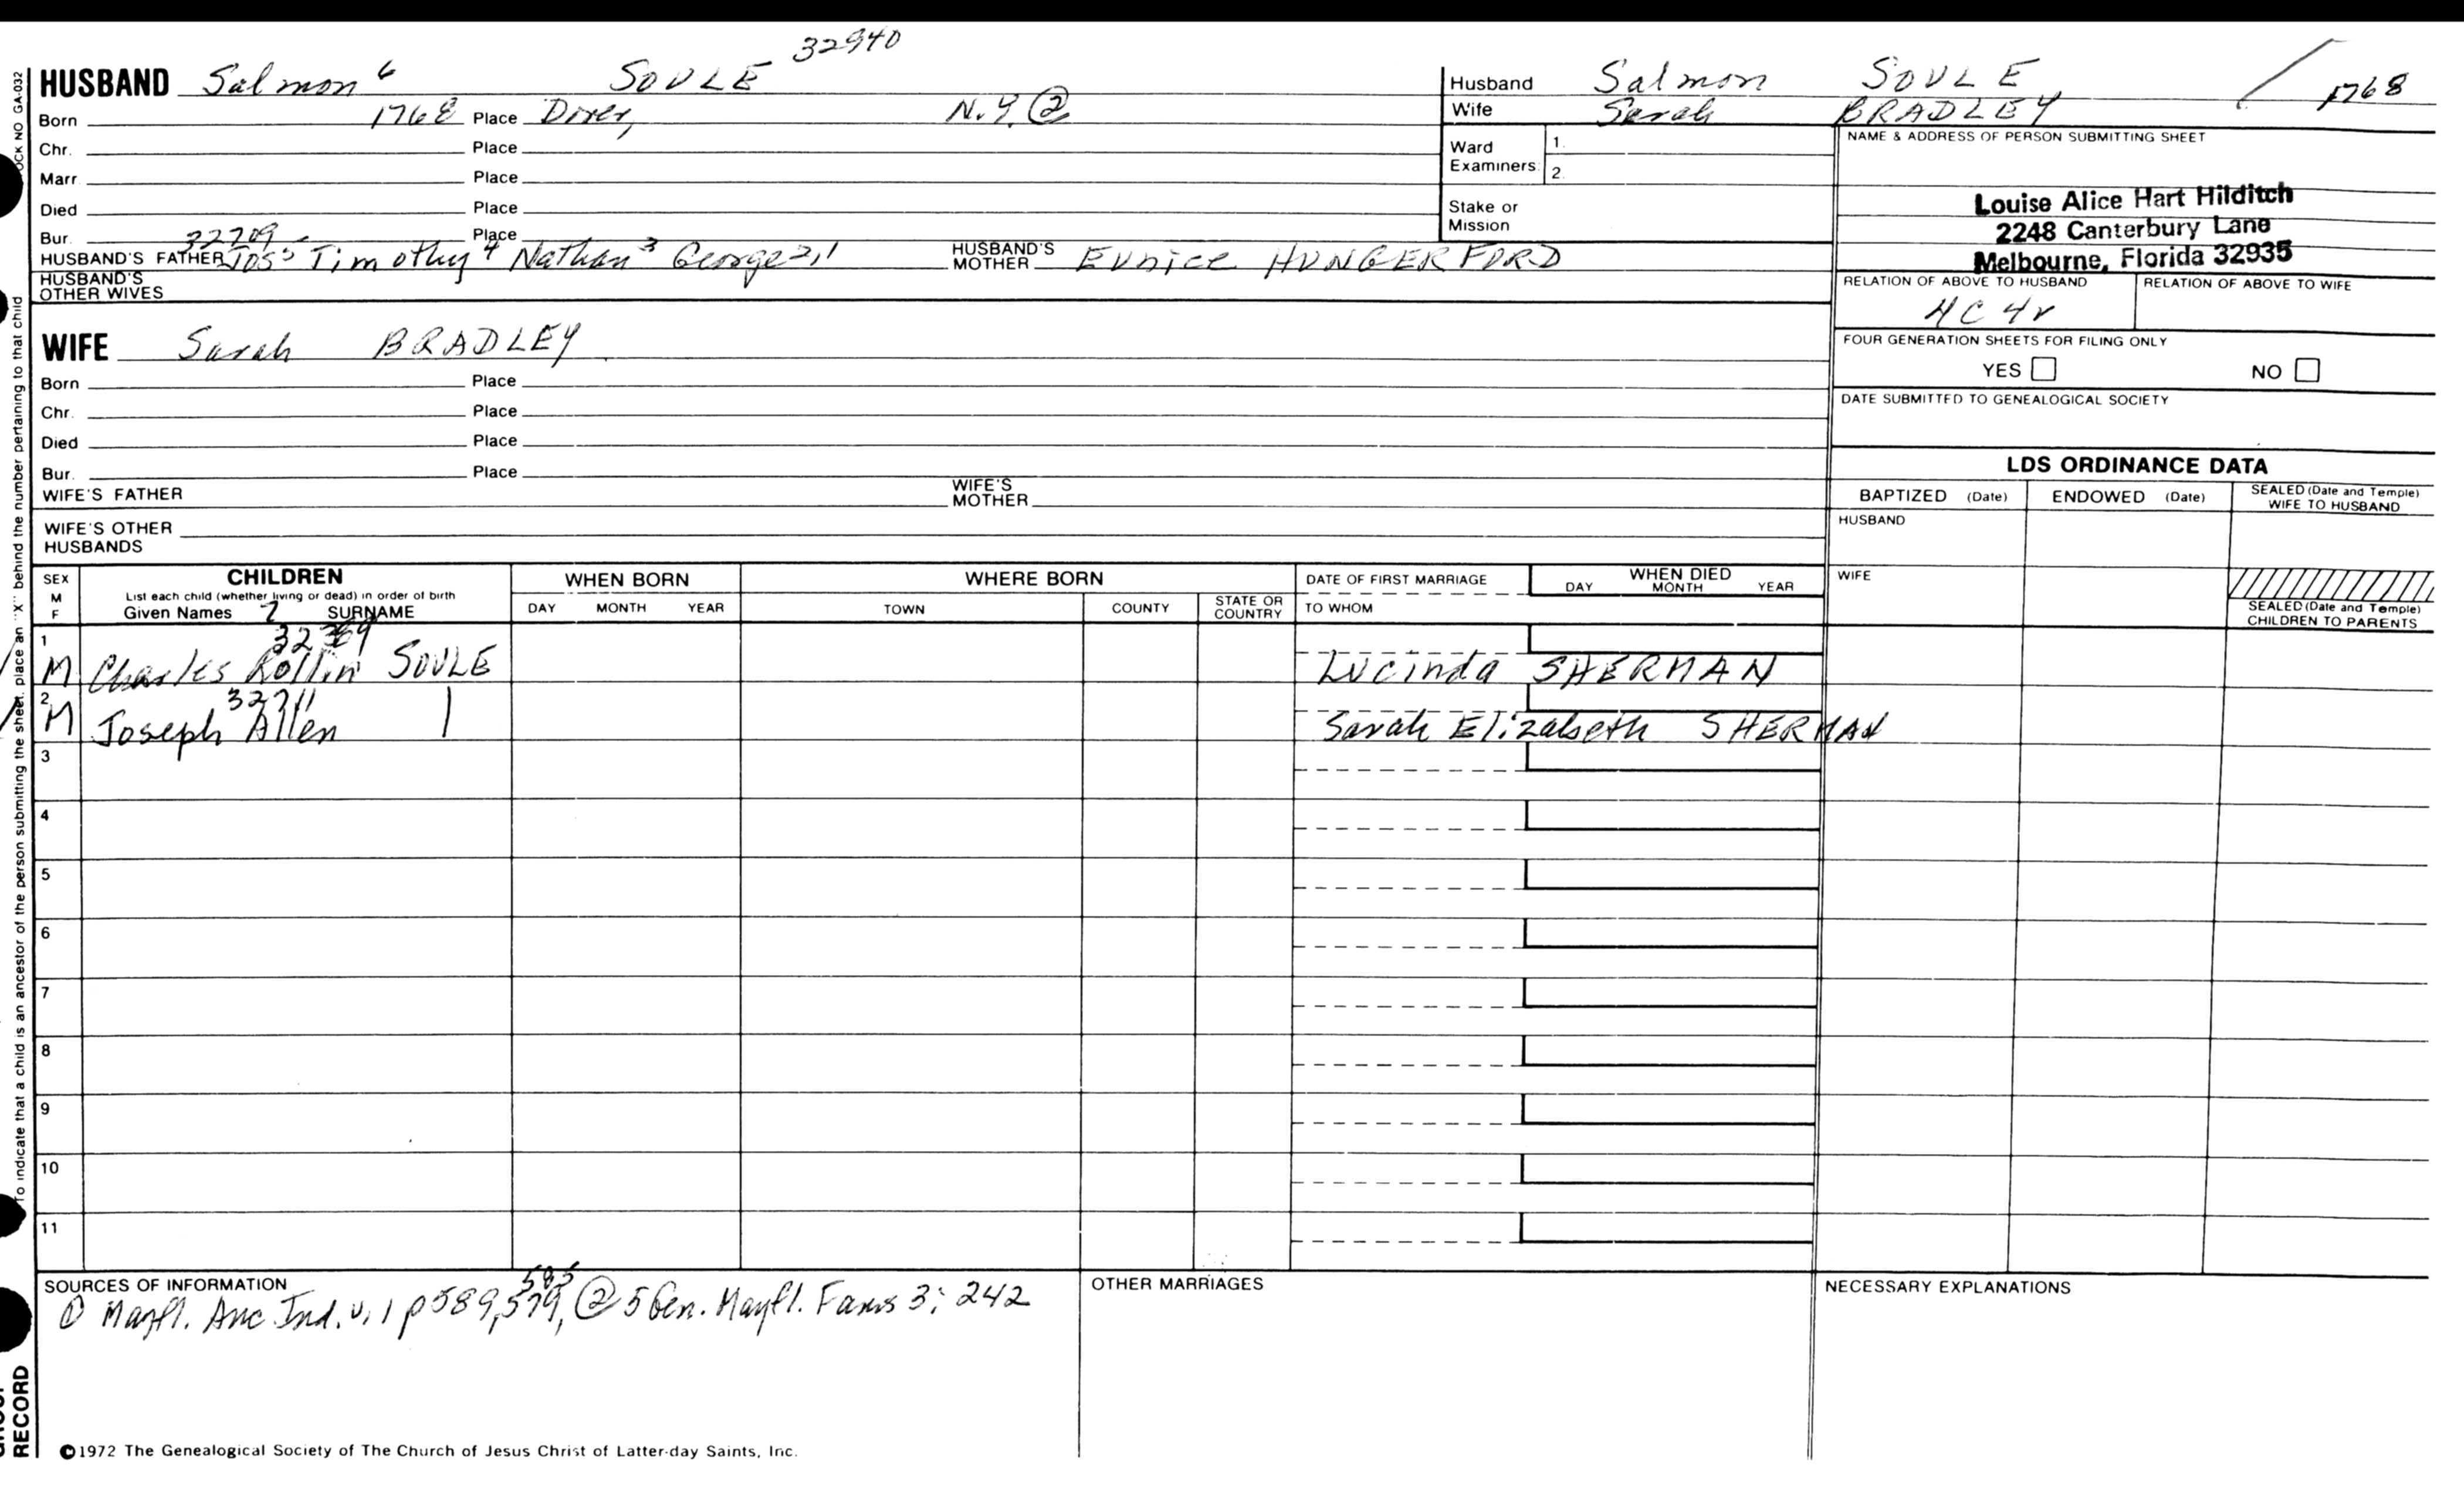 32940
HUSBAND Salmon 6 SOULE
Born 1768 Place Dover, N.Y. ②
Chr. Place
Marr Place
Died Place
Bur. Place
32709
HUSBAND'S FATHER Jos 5 Timothy 4 Nathan 3 George 2,1 HUSBAND'S MOTHER Eunice HUNGERFORD
HUSBAND'S OTHER WIVES
WIFE Sarah BRADLEY
Born Place
Chr. Place
Died Place
Bur. Place
WIFE'S FATHER WIFE'S MOTHER
WIFE'S OTHER HUSBANDS
Husband Salmon SOULE / 1768
Wife Sarah BRADLEY
Ward Examiners: 1. 2.
Stake or Mission
NAME & ADDRESS OF PERSON SUBMITTING SHEET
Louise Alice Hart Hilditch
2248 Canterbury Lane
Melbourne, Florida 32935
RELATION OF ABOVE TO HUSBAND RELATION OF ABOVE TO WIFE
4C 4r
FOUR GENERATION SHEETS FOR FILING ONLY
YES NO
DATE SUBMITTED TO GENEALOGICAL SOCIETY
LDS ORDINANCE DATA
BAPTIZED (Date) ENDOWED (Date) SEALED (Date and Temple) WIFE TO HUSBAND
HUSBAND
WIFE
SEALED (Date and Temple) CHILDREN TO PARENTS
SEX M F CHILDREN WHEN BORN WHERE BORN DATE OF FIRST MARRIAGE WHEN DIED
List each child (whether living or dead) in order of birth
Given Names 7 SURNAME DAY MONTH YEAR TOWN COUNTY STATE OR COUNTRY TO WHOM DAY MONTH YEAR
1 M Charles Rollin SOULE Lucinda SHERMAN
32711
2 M Joseph Allen | Sarah Elizabeth SHERMAN
3
4
5
6
7
8
9
10
11
SOURCES OF INFORMATION OTHER MARRIAGES NECESSARY EXPLANATIONS
① Mayfl. Anc Ind. v. 1 p 589, 579, ② 5 Gen. Mayfl. Fams 3: 242
©1972 The Genealogical Society of The Church of Jesus Christ of Latter-day Saints, Inc.
To indicate that a child is an ancestor of the person submitting the sheet, place an "X" behind the number pertaining to that child
NO GA-032
RECORD